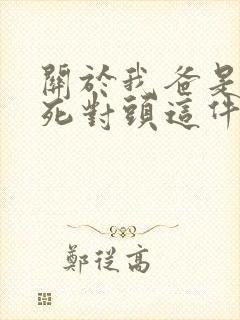 關於我爸是
死對頭這件
鄭從高